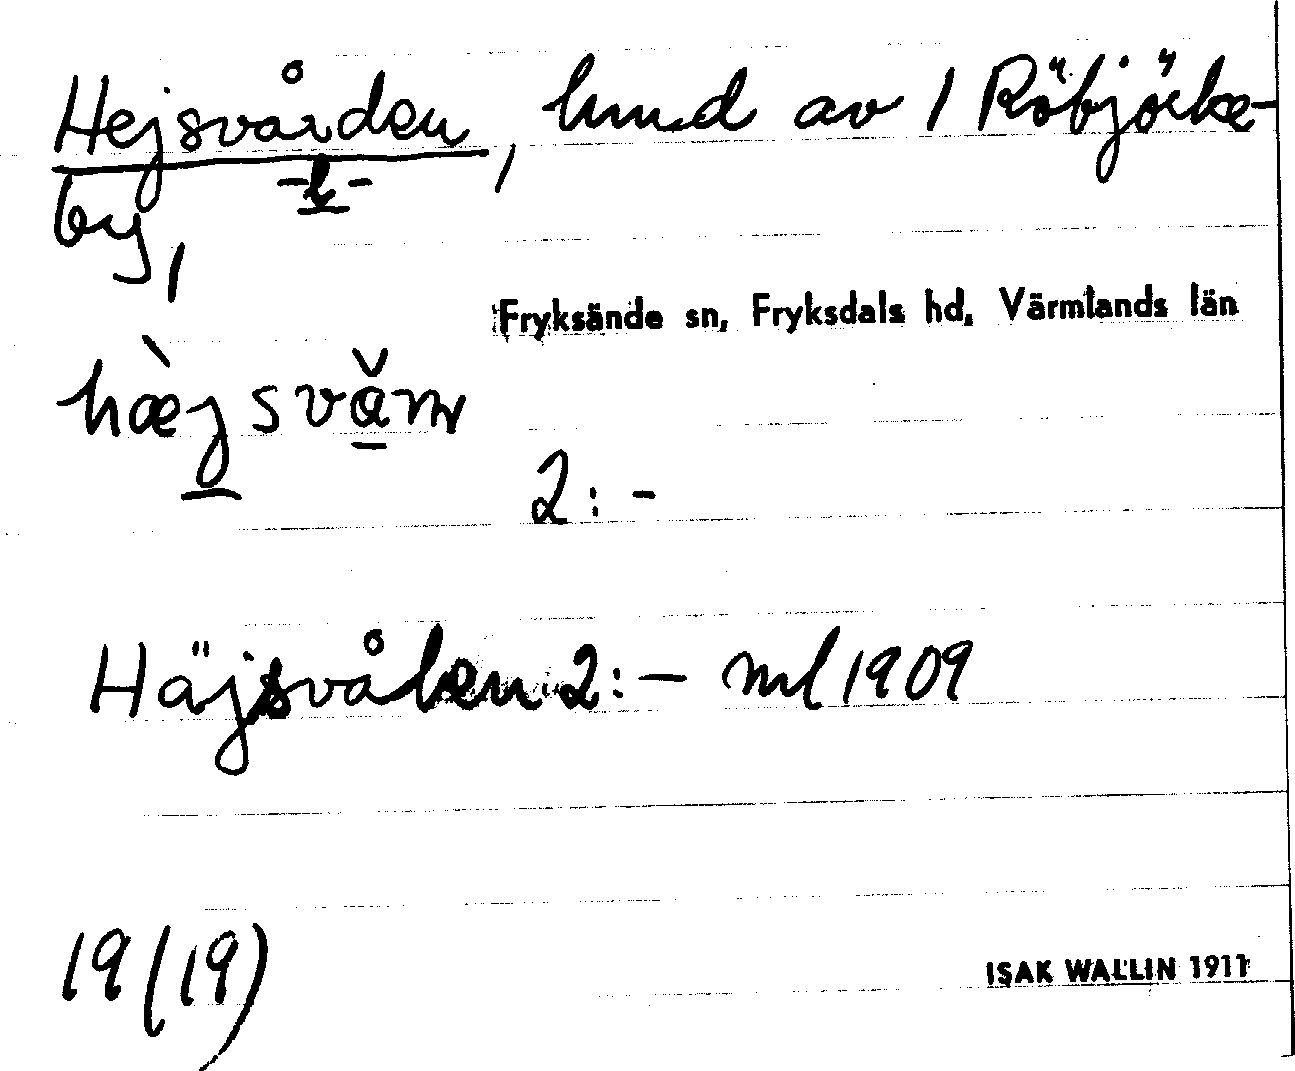 Hejsvården, hmd av 1 Röbjörke-
-l-
by,
Fryksände sn, Fryksdals hd, Värmlands län
hæ̀jsvǎm
2:-
Häjsvålen 2:- ml 1909
19(19)
ISAK WALLIN 1911